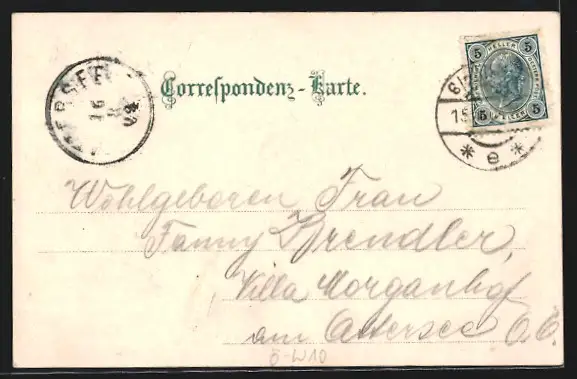 Correspondenz-Karte.
5 HELLER 5
5 5
15
* e *
16
Wohlgeboren Frau
Fanny Brendler,
Villa Morganhof
am Attersee O. Ö.
Ö-W10